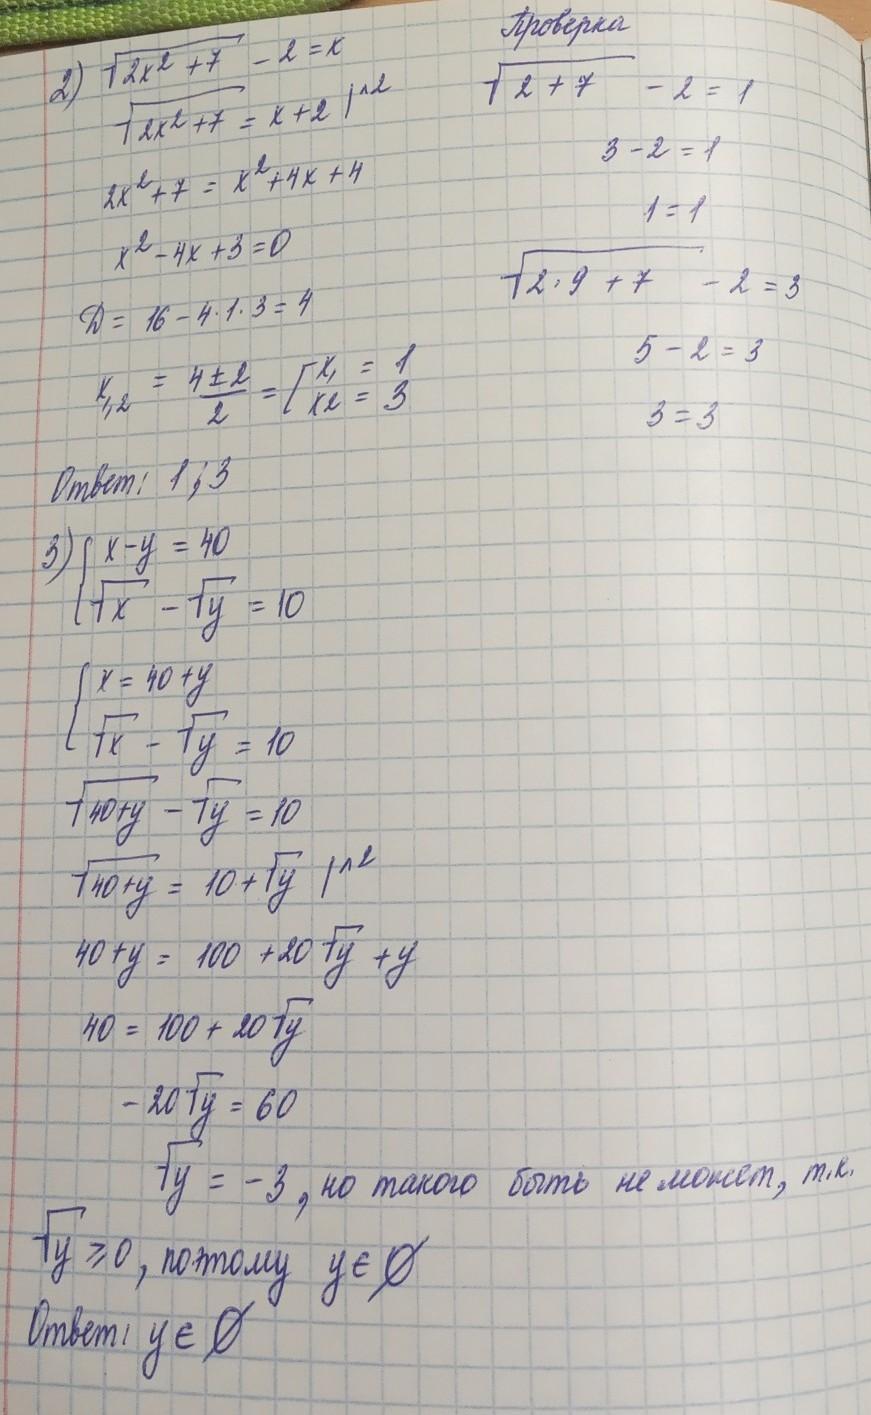 2) √(2x² + 7) - 2 = x
√(2x² + 7) = x + 2 |^2
2x² + 7 = x² + 4x + 4
x² - 4x + 3 = 0
D = 16 - 4·1·3 = 4
x₁,₂ = (4 ± 2)/2 = [ x₁ = 1
x2 = 3
Ответ: 1; 3
Проверка
√(2 + 7) - 2 = 1
3 - 2 = 1
1 = 1
√(2·9 + 7) - 2 = 3
5 - 2 = 3
3 = 3
3) { x - y = 40
√x - √y = 10
{ x = 40 + y
√x - √y = 10
√(40+y) - √y = 10
√(40+y) = 10 + √y |^2
40 + y = 100 + 20√y + y
40 = 100 + 20√y
-20√y = 60
√y = -3, но такого быть не может, т.к.
√y ≥ 0, поэтому y ∈ ∅
Ответ: y ∈ ∅